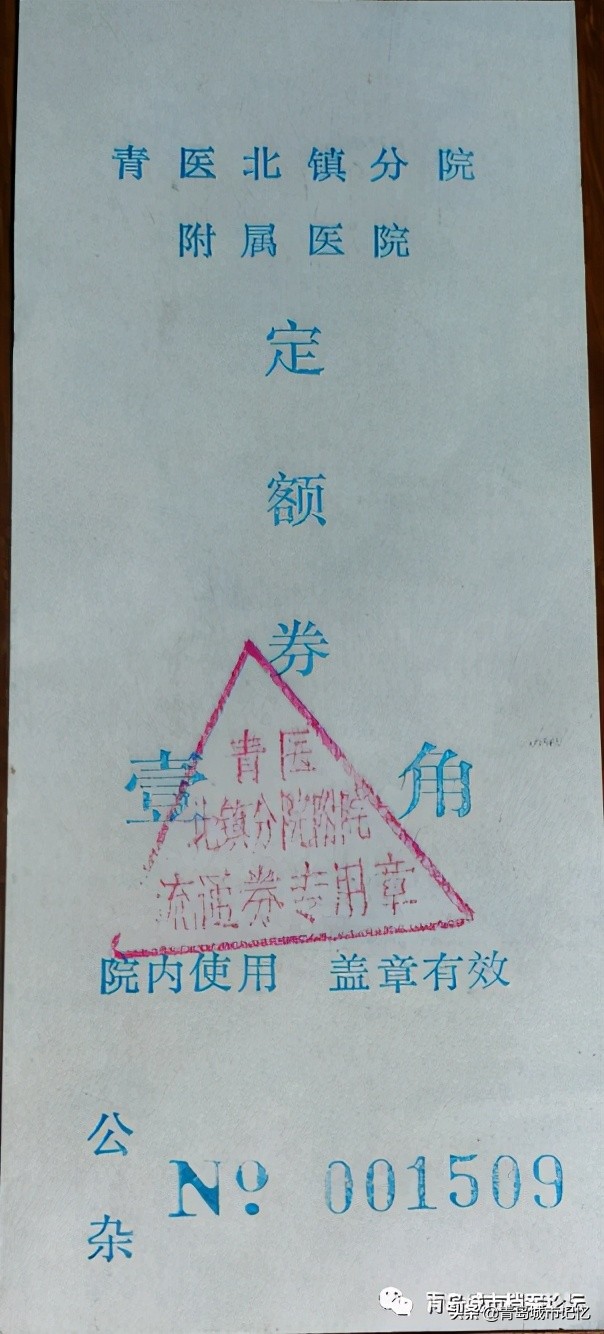 青医北镇分院
附属医院
定
额
券
壹 角
青医
北镇分院附院
流通券专用章
院内使用 盖章有效
公
杂
№ 001509
青岛城市档案论坛
头条 @青岛城市记忆